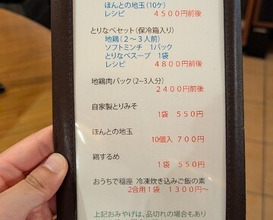 ほんとの地玉(10ケ)
レシピ 4500円前後
とりなべセット(保冷箱入り)
地鶏(2~3人前)
ソフトミンチ 1パック
とりなべスープ 1袋
レシピ 5800円前後
地鶏肉パック(2~3人分)
2400円前後
自家製とりみそ
1袋 550円
ほんとの地玉
10個入 700円
鶏するめ
1袋 550円
おうちで穏座 冷凍炊き込みご飯の素
2合用1袋 1300円~
上記おみやげは、品切れの場合もあり